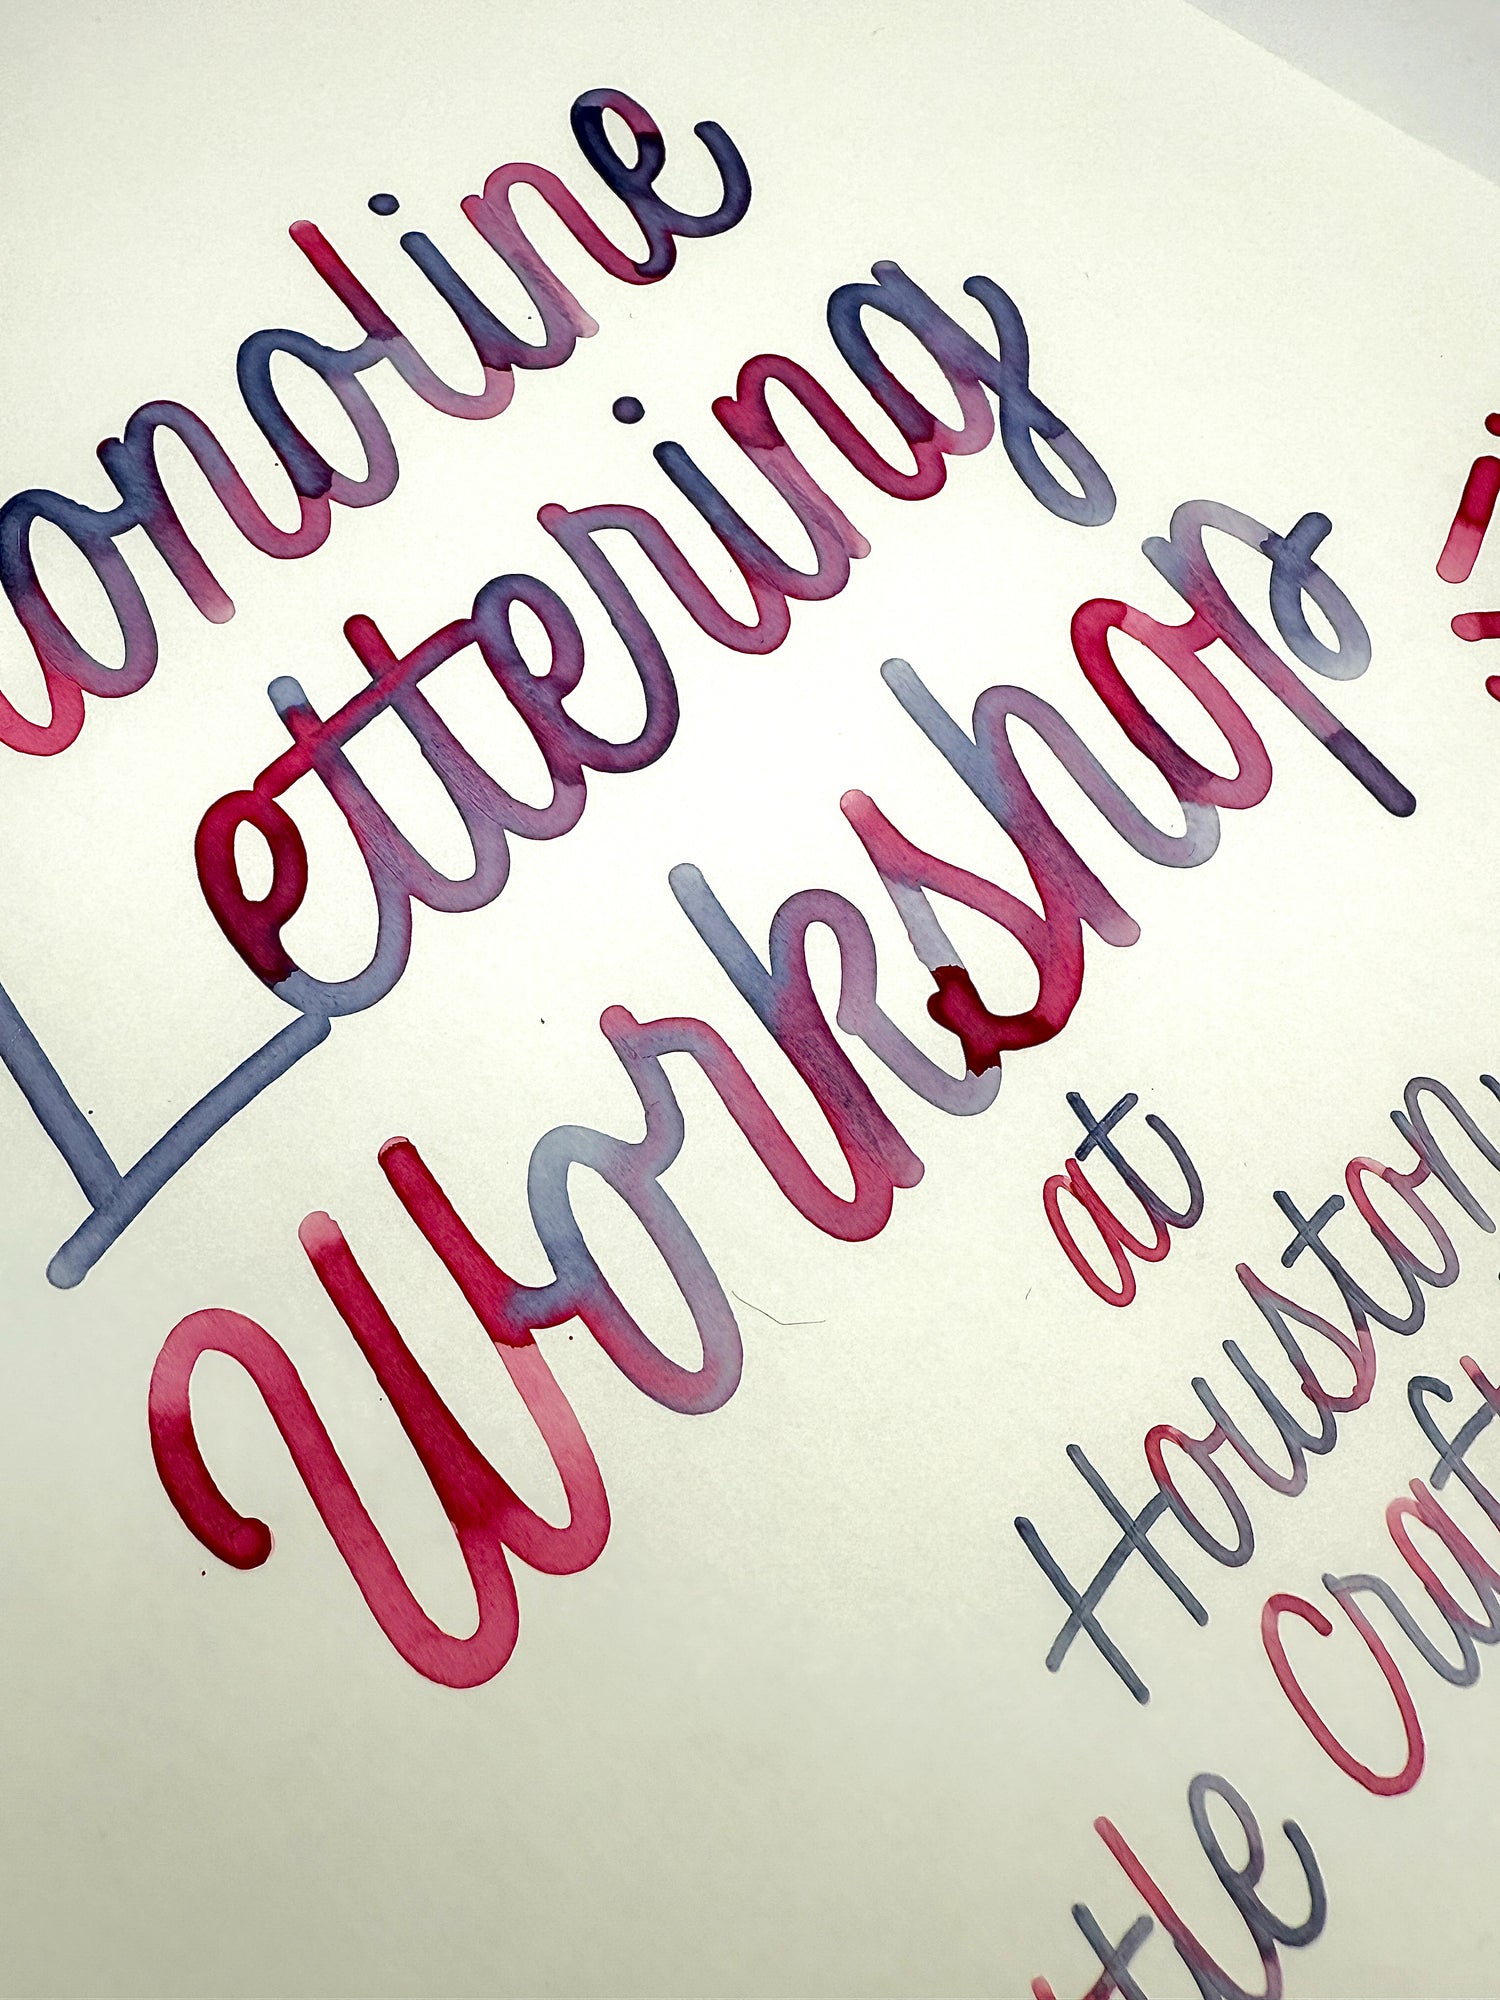 onoline
Lettering
Workshop
at
Houston
Craft
tle